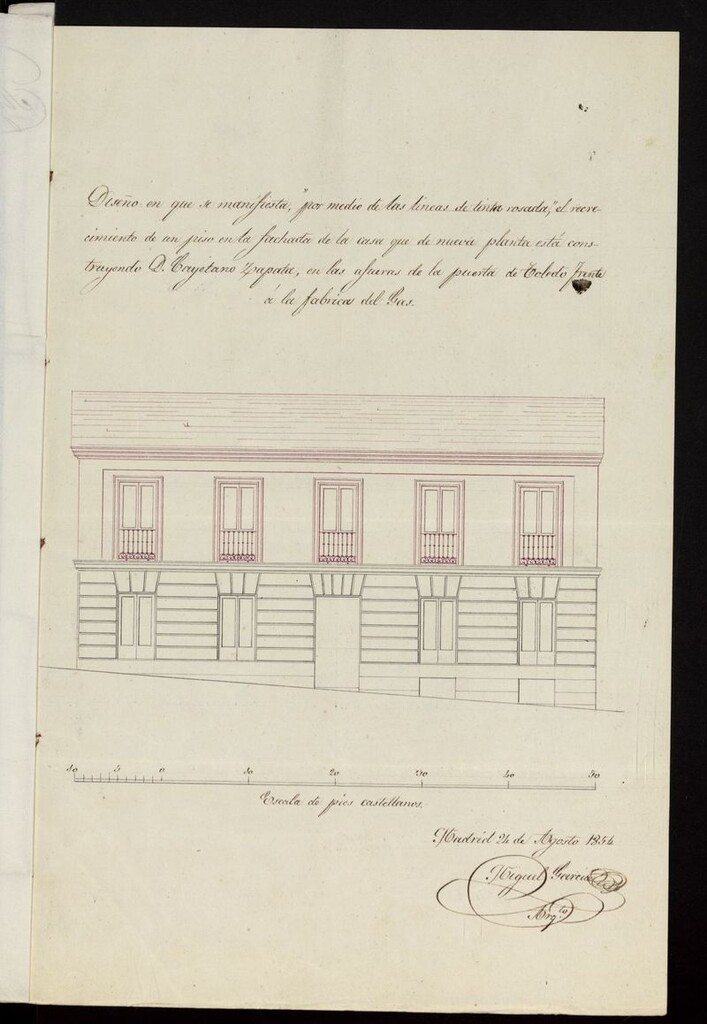 Diseño en que se manifiesta, "por medio de las lineas de tinta rosada," el recre-
cimiento de un piso en la fachada de la casa que de nueva planta está cons-
truyendo D. Cayetano Zapata, en las afueras de la puerta de Toledo frente
á la fabrica del Gas.
10 5 0 10 20 30 40 50
Escala de pies castellanos.
Madrid 24 de Agosto 1854
Miguel Garcia
Arq.to